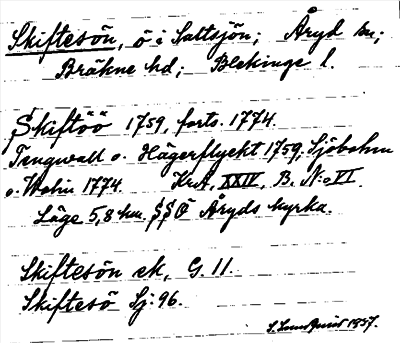 Skiftesön, ö i Saltsjön; Åryd sn;
Bräkne hd; Blekinge l.
Skiftöö 1759, forts. 1774.
Tengwall o. Hägerflyckt 1759; Sjöbohm
o. Wehin 1774. KrA, XXIV, B, N:o VI.
Läge 5,8 km. SSÖ Åryds kyrka.
Skiftesön ek, G. 11.
Skiftesö Sj: 96.
S. Lundquist 1957.